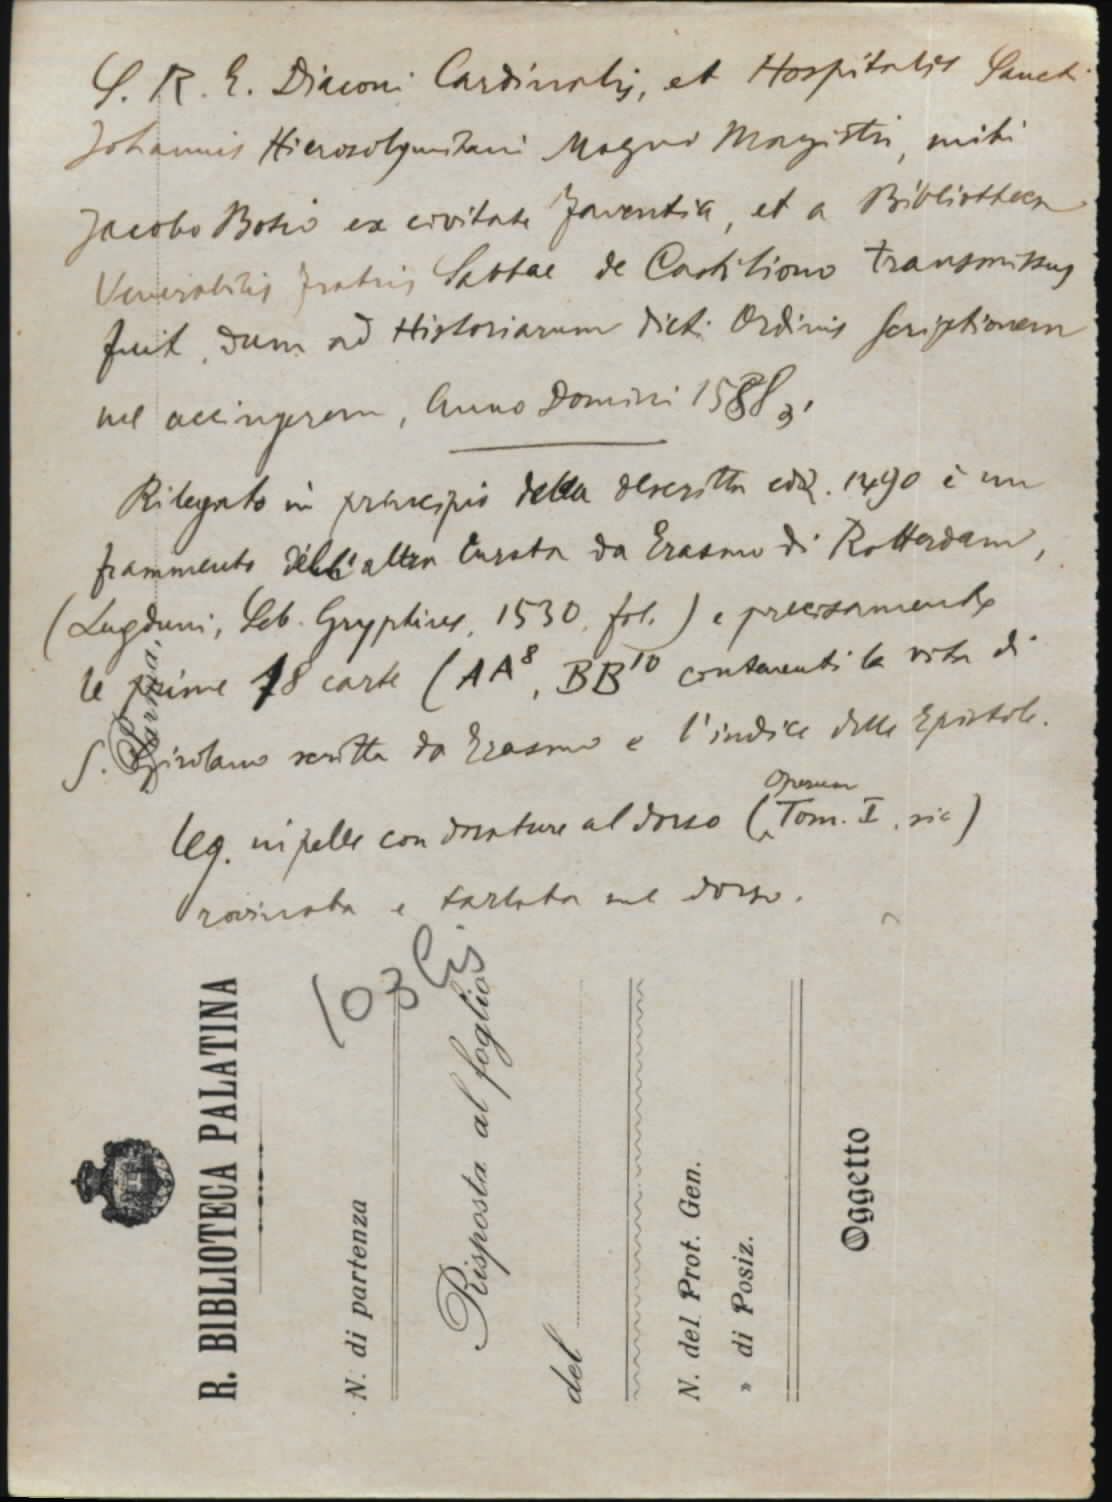 S. R. E. Diaconi Cardinalis, et Hospitalis Sancti
Johannis Hierosolymitani Magno Magistri, mihi
Jacobo Bosio ex civitate Faventia, et a Bibliotheca
Venerabilis fratris Sabbae de Castiliono transmissus
fuit, dum ad Historiarum dicti Ordinis scriptionem
me accingerem, Anno Domini 1588,
Rilegato in principio della descritta ediz. 1490 è un
frammento dell'altra curata da Erasmo di Rotterdam,
(Lugduni, Seb. Gryphius, 1530, fol.) e precisamente
le prime 18 carte (AA8, BB10 contenenti la vita di
S. Girolamo scritta da Erasmo e l'indice delle Epistole.
Leg. in pelle con dorature al dorso (Operum Tom. I, sic)
rovinata e tarlata sul dorso.
103 bis
R. BIBLIOTECA PALATINA
Parma,
N. di partenza
Risposta al foglio
del
N. del Prot. Gen.
» di Posiz.
Oggetto